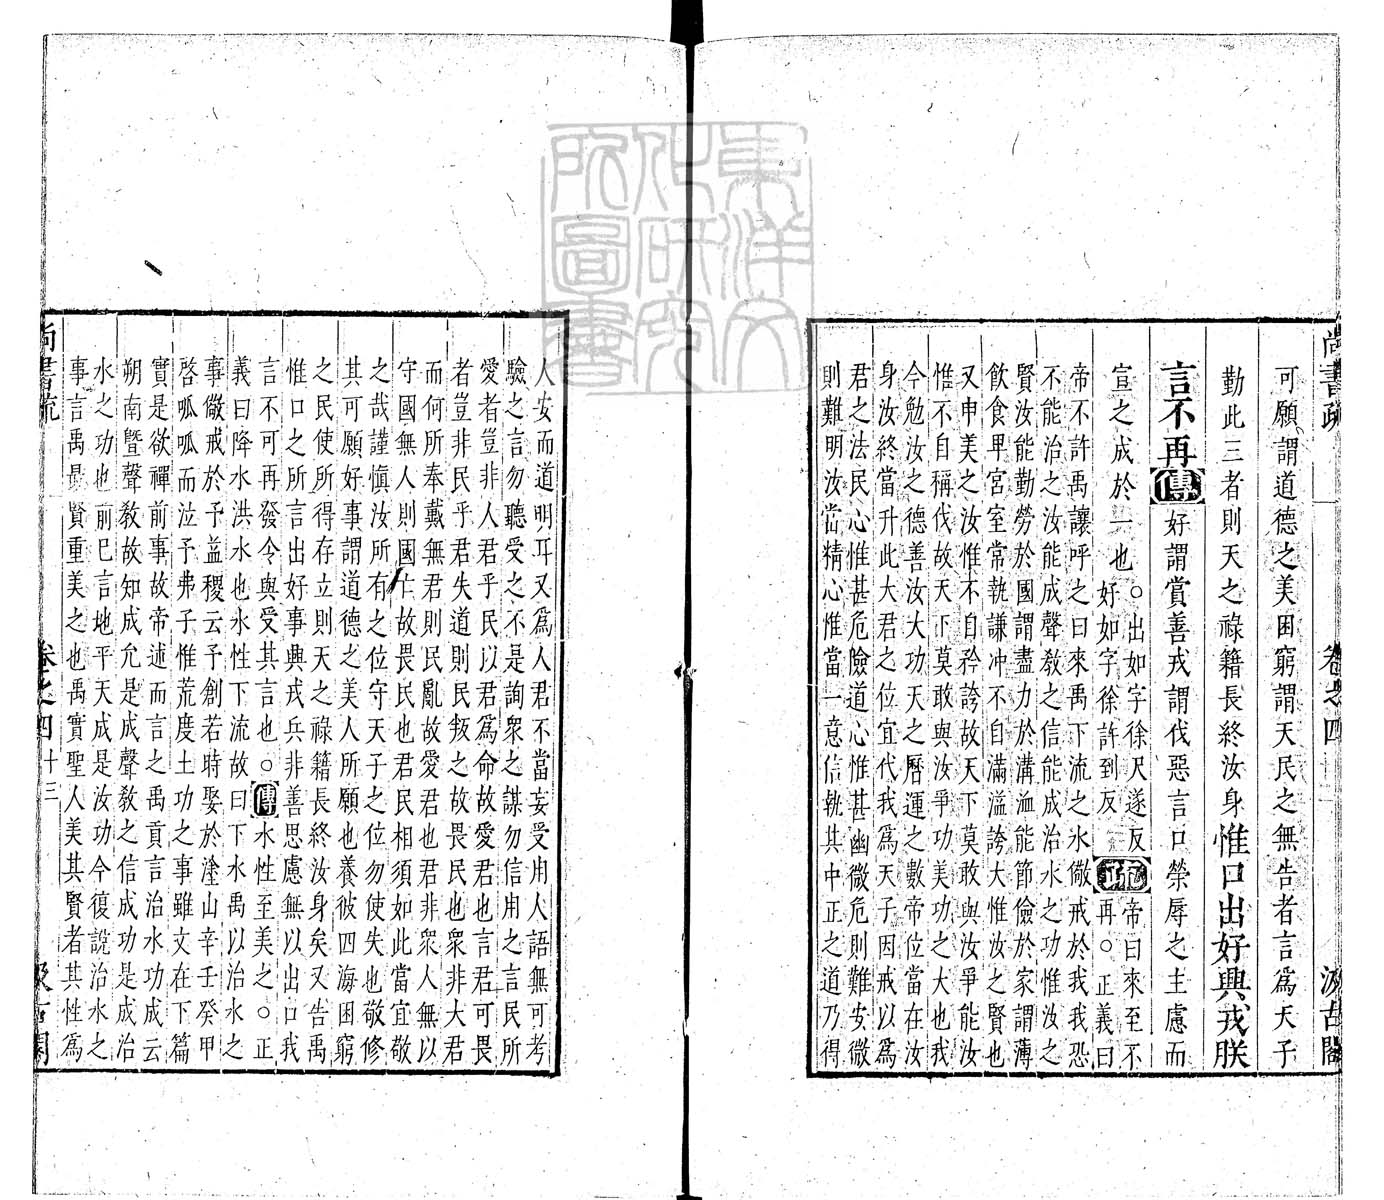 尚書疏
卷之四
汲古閣
可願謂道德之美困窮謂天民之無告者言爲天子
勤此三者則天之祿籍長終汝身惟口出好興戎朕
言不再傳好謂賞善戎謂伐惡言口榮辱之主慮而
宣之成於一也
○出如字徐尺遂反
好如字徐許到反
疏
帝曰來至不
再○正義曰
帝不許禹讓呼之曰來禹下流之水儆戒於我我恐
不能治之汝能成聲教之信能成治水之功惟汝之
賢汝能勤勞於國謂盡力於溝洫能節儉於家謂薄
飲食卑宮室常執謙沖不自滿溢誇大惟汝之賢也
又申美之汝惟不自矜誇故天下莫敢與汝爭能汝
惟不自稱伐故天下莫敢與汝爭功美功之大也我
今勉汝之德善汝大功天之曆運之數帝位當在汝
身汝終當升此大君之位宜代我爲天子因戒以爲
君之法民心惟甚危險道心惟甚幽微危則難安微
則難明汝當精心惟當一意信執其中正之道乃得
人安而道明耳又爲人君不當妄受用人語無可考
驗之言勿聽受之不是詢衆之謀勿信用之言民所
愛者豈非人君乎民以君爲命故愛君也言君可畏
者豈非民乎君失道則民叛之故畏民也衆非大君
而何所奉戴無君則民亂故愛君也君非衆人無以
守國無人則國亡故畏民也君民相須如此當宜敬
之哉謹慎汝所有之位守天子之位勿使失也敬修
其可願好事謂道德之美人所願也養彼四海困窮
之民使所得存立則天之祿籍長終汝身矣又告禹
惟口之所言出好事興戎兵非善思慮無以出口我
言不可再發令與受其言也○傳水性至美之○正
義曰降水洪水也水性下流故曰下水禹以治水之
事儆戒於予益稷云予創若時娶於塗山辛壬癸甲
啓呱呱而泣予弗子惟荒度土功之事雖文在下篇
實是欲禪前事故帝述而言之禹貢言治水功成云
朔南暨聲教故知成允是成聲教之信成功是成治
水之功也前已言地平天成是汝功今復說治水之
事言禹最賢重美之也禹實聖人美其賢者其性爲
尚書疏
卷之四
十三
汲古閣
東洋文
化研究
所圖書